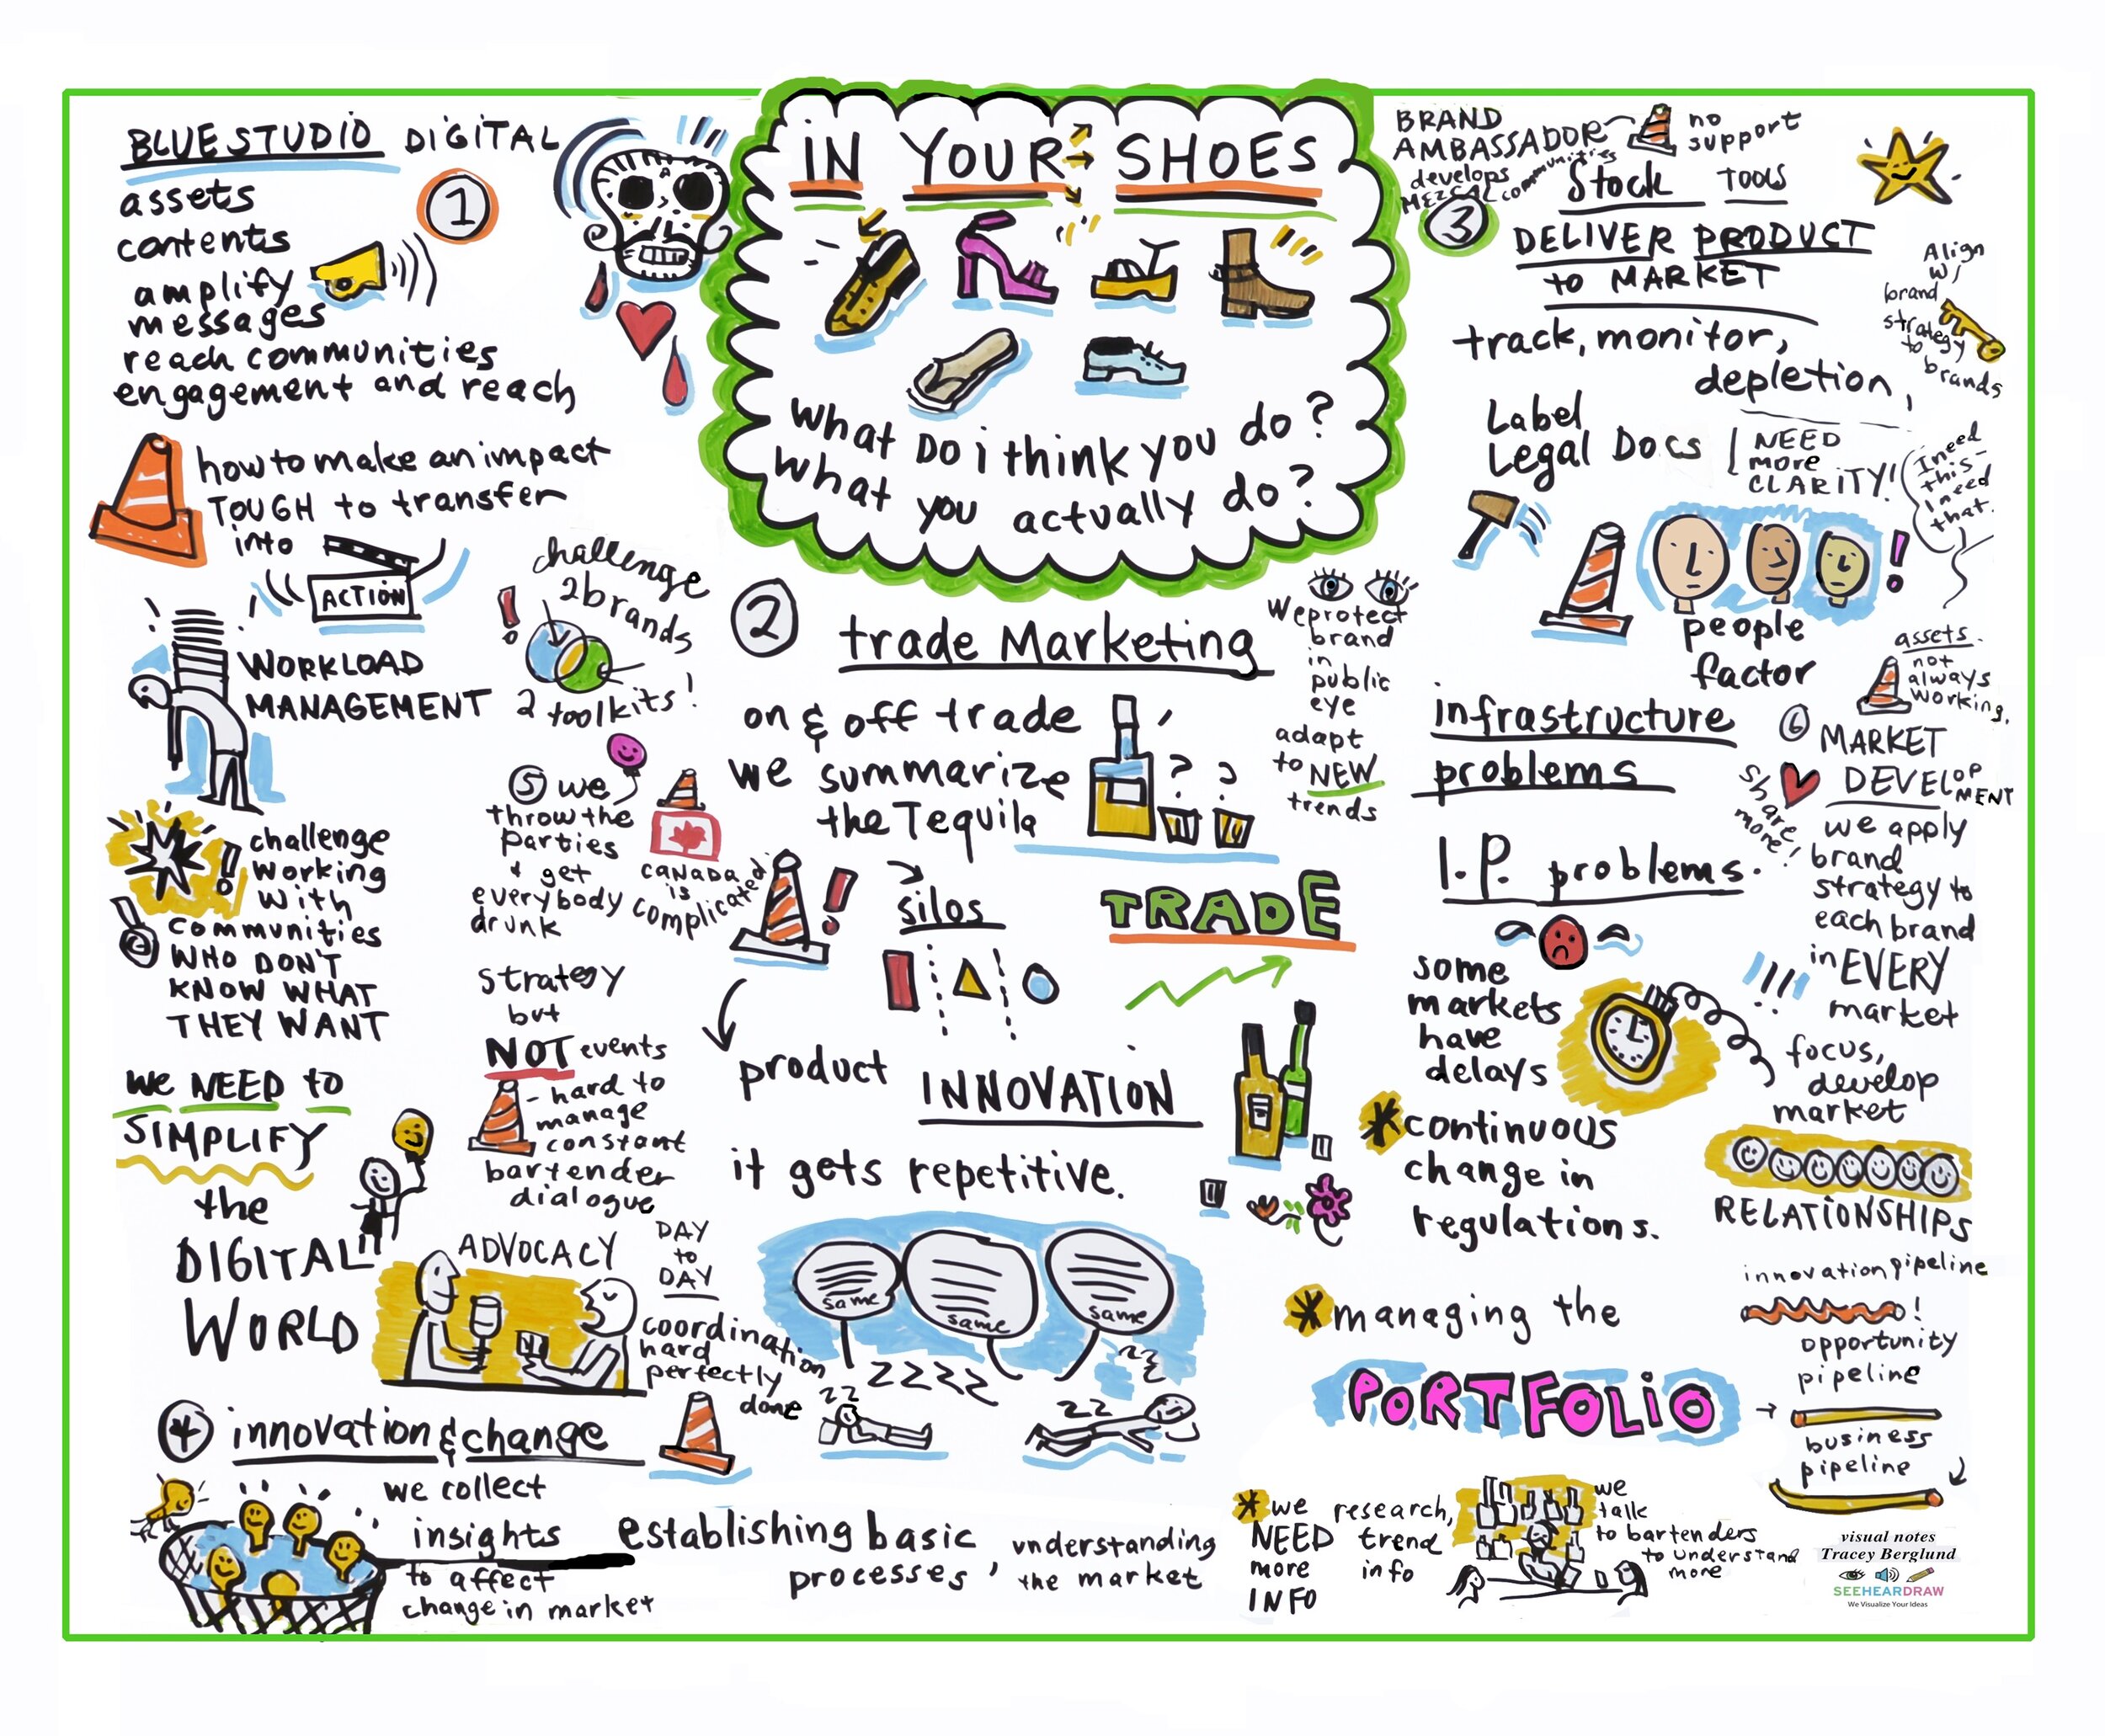 IN YOUR SHOES
What Do i think you do?
what you actually do?
BLUE STUDIO DIGITAL
1
assets
contents
amplify
messages
reach communities
engagement and reach
how to make an impact
TOUGH to transfer
into
ACTION
WORKLOAD
MANAGEMENT
challenge
2 brands
2 toolkits!
challenge
working
with
communities
WHO DON'T
KNOW WHAT
THEY WANT
we NEED to
SIMPLIFY
the
DIGITAL
WORLD
2
trade Marketing
on & off trade
we summarize
the Tequila
? ?
We protect
brand
in
public
eye
adapt
to NEW
trends
silos
TRADE
product INNOVATION
it gets repetitive.
same
same
same
ZZZZ
ZZ
ZZ
ZZ
BRAND
AMBASSADOR
develops
MEZCAL communities
no
support
3
Stock TOOLS
DELIVER PRODUCT
to MARKET
Align
w/
brand
strategy
to
brands
track, monitor,
depletion,
Label
Legal Docs
NEED
more
CLARITY!
I need
this-
I need
that.
people
factor
infrastructure
problems
I.P. problems.
some
markets
have
delays
continuous
change in
regulations.
managing the
PORTFOLIO
we
NEED
more
INFO
research,
trend
info
we
talk
to bartenders
to understand
more
4
innovation & change
we collect
insights
to affect
change in market
establishing basic
processes,
understanding
the market
5 we
throw the
parties
& get
everybody
drunk
CANADA
is
complicated
strategy
but
NOT events
- hard to
manage
constant
bartender
dialogue
ADVOCACY
DAY
to
DAY
coordination
hard
perfectly
done
assets.
not
always
working.
6 MARKET
DEVELOPMENT
share
more!
we apply
brand
strategy to
each brand
in EVERY
market
focus,
develop
market
RELATIONSHIPS
innovation pipeline
!
opportunity
pipeline
business
pipeline
visual notes
Tracey Berglund
SEEHEARDRAW
We Visualize Your Ideas